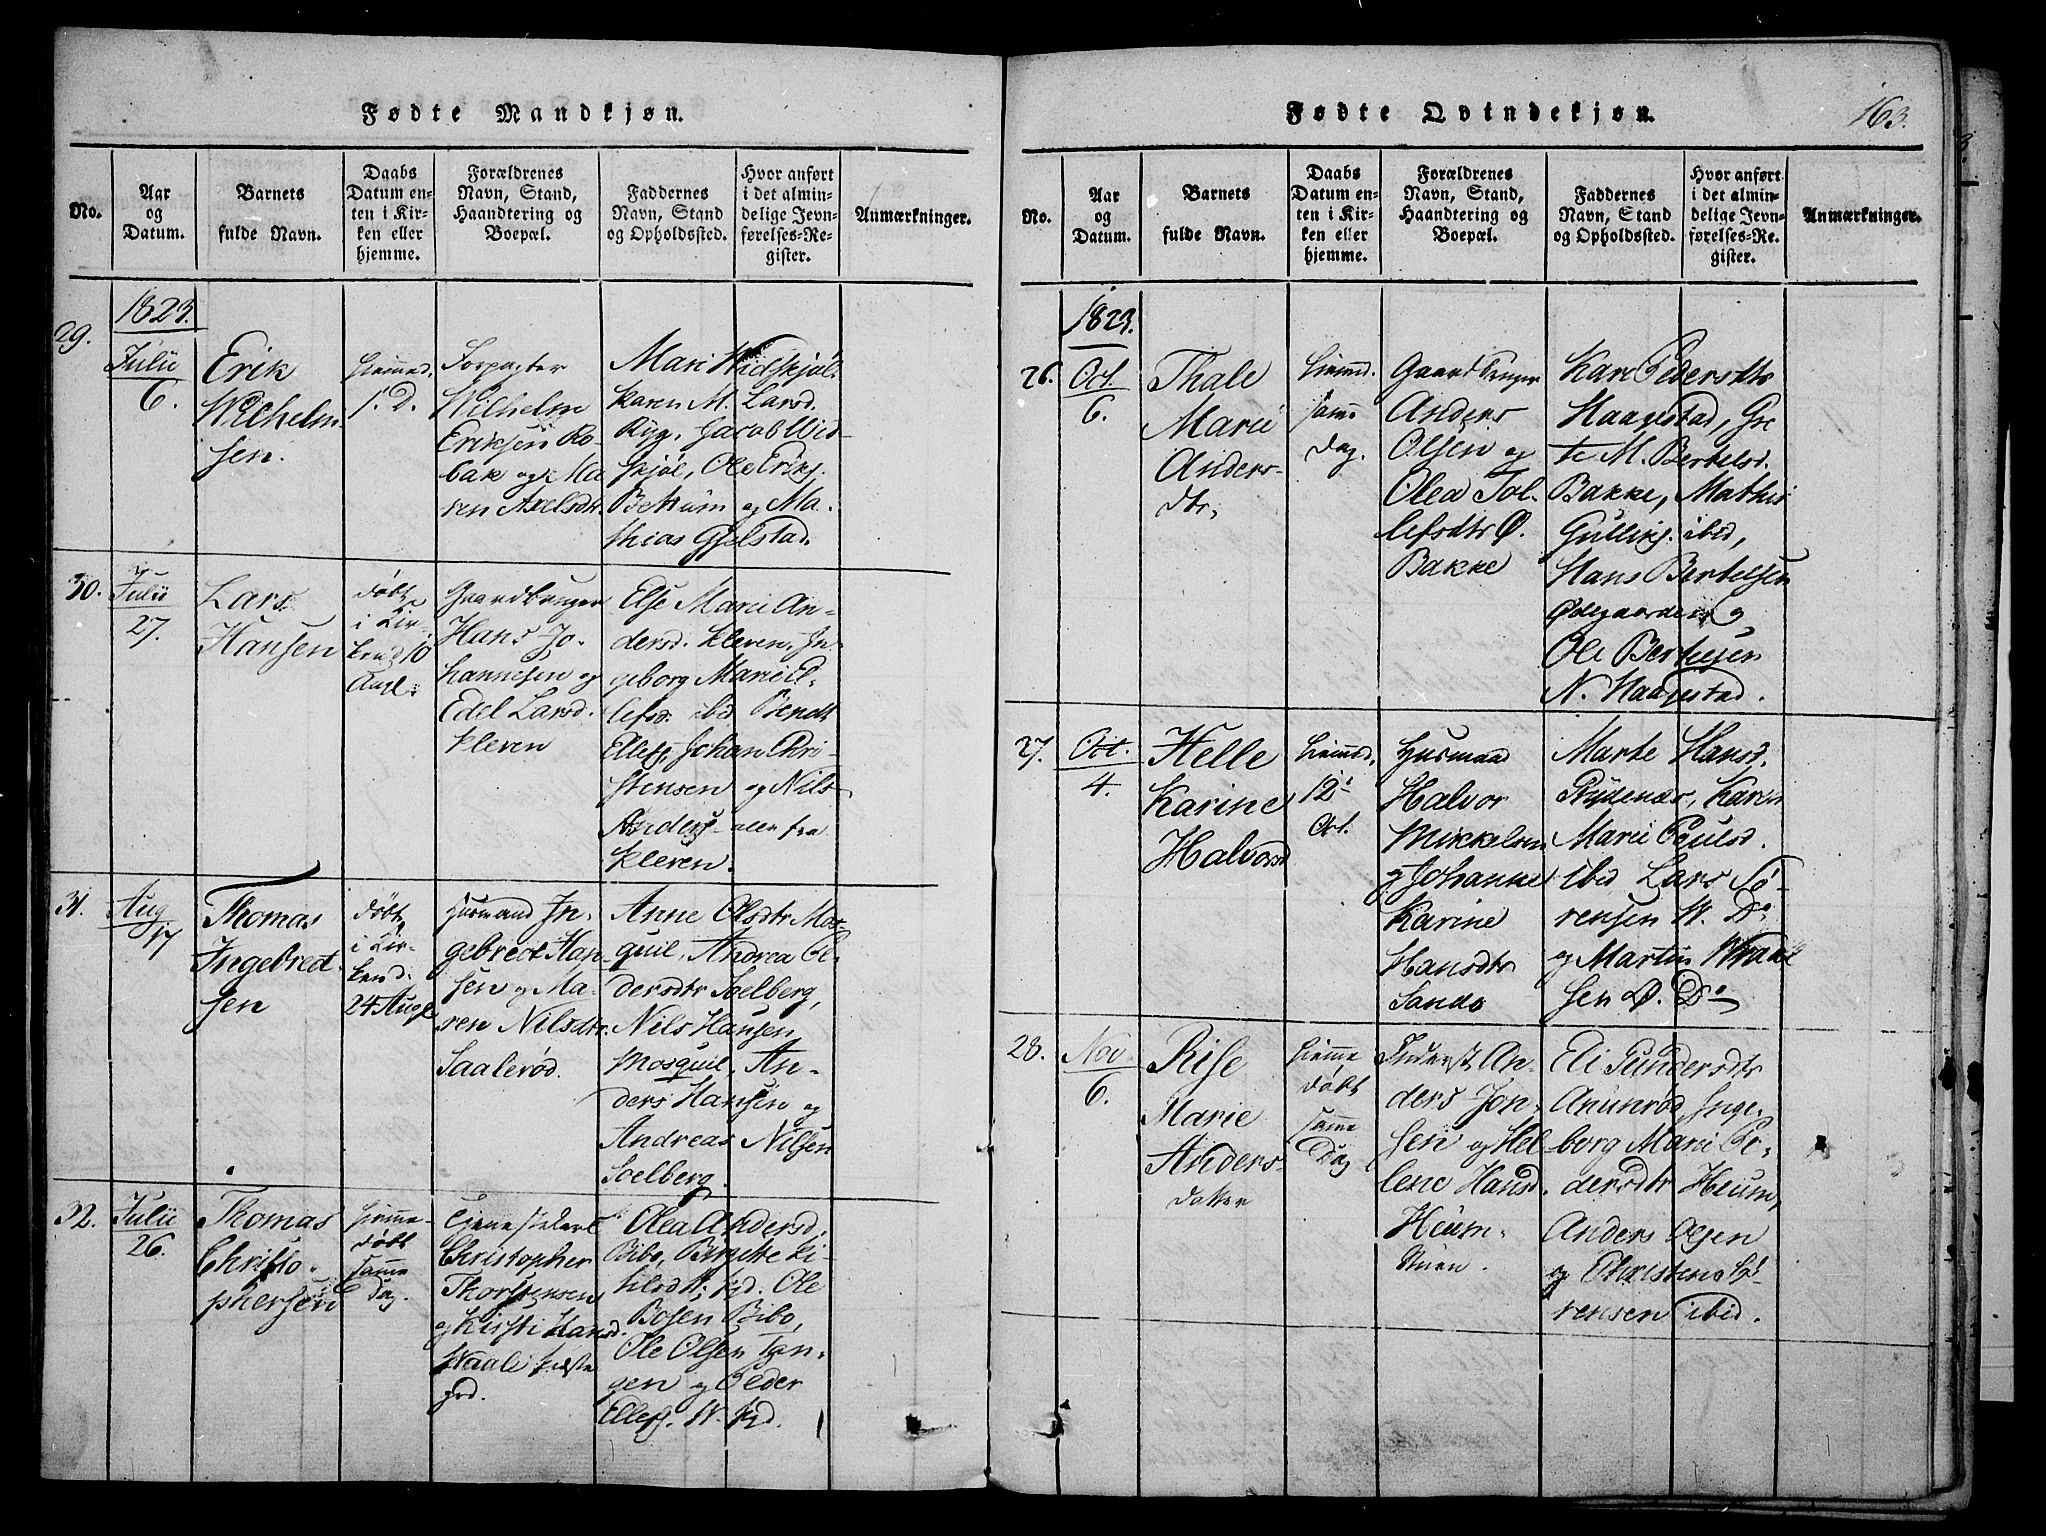 Fødte Mandkjøn.
No.
Aar
og
Datum.
Barnets
fulde Navn.
Daabs
Datum en-
ten i Kir-
ken eller
hjemme.
Forældrenes
Navn, Stand,
Haandtering og
Boepæl.
Faddernes
Navn, Stand
og Opholdssted.
Hvor anført
i det almin-
delige Jevn-
førelses-Re-
gister.
Anmærkninger.
1823.
29.
Julii
6.
Erik
Wilhelm-
sen.
hiemmed.
1. D.
Forpagter
Wilhelm
Eriksen Ro-
bak og Ma-
ren Axelsdtr.
Mari Widskjøl.
Karen M. Larsd.
Ryg. Jacob Wid-
skjøl, Ole Eriks.
Bettum og Ma-
thias Gjelstad.
30.
Julii
27.
Lars
Hansen
døbt
i Kir-
ken d 10
Aug.
Gaardbruger
Hans Jo-
hannesen og
Edel Larsd.
Kleven
Else Marie An-
dersd. Kleven, In-
geborg Marie El-
lefsd. ibid Bendt
Ellefs, Johan Chri-
stensen og Nils
Anders. alle fra
Kleven.
31.
Aug
17
Thomas
Ingebret-
sen
døbt
i Kir-
ken d.
24 Aug.
Husmand In-
gebret Han-
sen og Ma-
ren Nilsdtr.
Saalerød.
Anne Olsdtr Mos-
quil, Andrea Pe-
dersdtr Solberg,
Nils Hansen
Mosquil, An-
ders Hansen og
Andreas Nilsen
Soelberg.
32.
Julii
26.
Thomas
Christo-
phersen
hieme-
døbt
samme
Dag.
Tjenestekarl
Christopher
Thorstensen
og Kirsti Hansd.
Waale Præste
grd.
Olea Andersd.
Bibo, Birgitte Ki-
tilsdtr; Ole
Bosen Bibo,
Ole Olsen Tan-
gen og Peder
Ellefs. W.
Fødte Qvindekjøn.
163.
No.
Aar
og
Datum.
Barnets
fulde Navn.
Daabs
Datum en-
ten i Kir-
ken eller
hjemme.
Forældrenes
Navn, Stand,
Haandtering og
Boepæl.
Faddernes
Navn, Stand
og Opholdssted.
Hvor anført
i det almin-
delige Jevn-
førelses-Re-
gister.
Anmærkninger.
1823.
26.
Oct.
6.
Thale
Marie
Anders-
dtr,
hiemd.
samme
Dag.
Gaardbruger
Anders
Olsen og
Olea Tol-
lefsdtr Ø.
Bakke
Kari Pedersdtr
Haagestad, Gre
te M. Bertelsd.
Bakke, Mathis
Gulliks. ibid,
Hans Bertelsen
Ødegaarden og
Ole Bertelsen
N. Haagestad.
27.
Oct.
4.
Helle
Karine
Halvorsd
hiemd.
12
Oct.
Husmand
Halvor
Mikkelsen
og Johanne
Karine
Hansdtr
Sande
Marte Hansd.
Rydenæs, Karen
Marie Poulsd.
ibid Lars Sö-
rensen W. Do
og Martin
sen Ø. Do
28.
Nov.
6.
Rise
Marie
Anders-
datter
hieme
døbt
samme
Dag
Inderst An-
ders Jon-
sen og Hel-
lene Hansd.
Heum-
Eli Gundersdtr
Anunrød, Inge-
borg Marie Pe-
dersdtr Heum,
Anders Olsen
og Christen Sö-
rensen ibid.